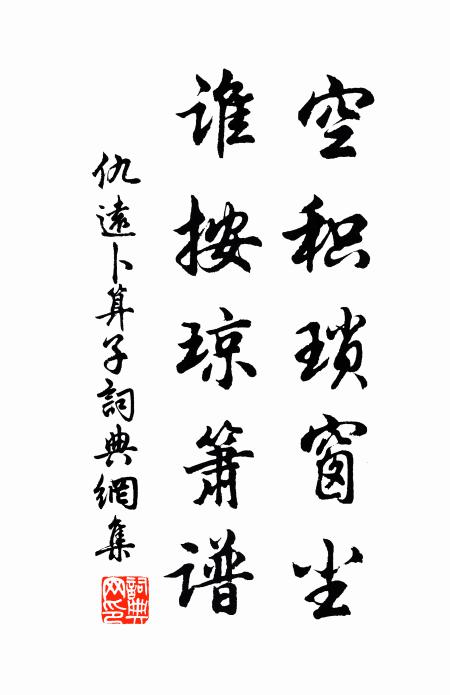 空积琐窗尘
谁按琼箫谱
仇遠卜算子詞典網集
詞典网印